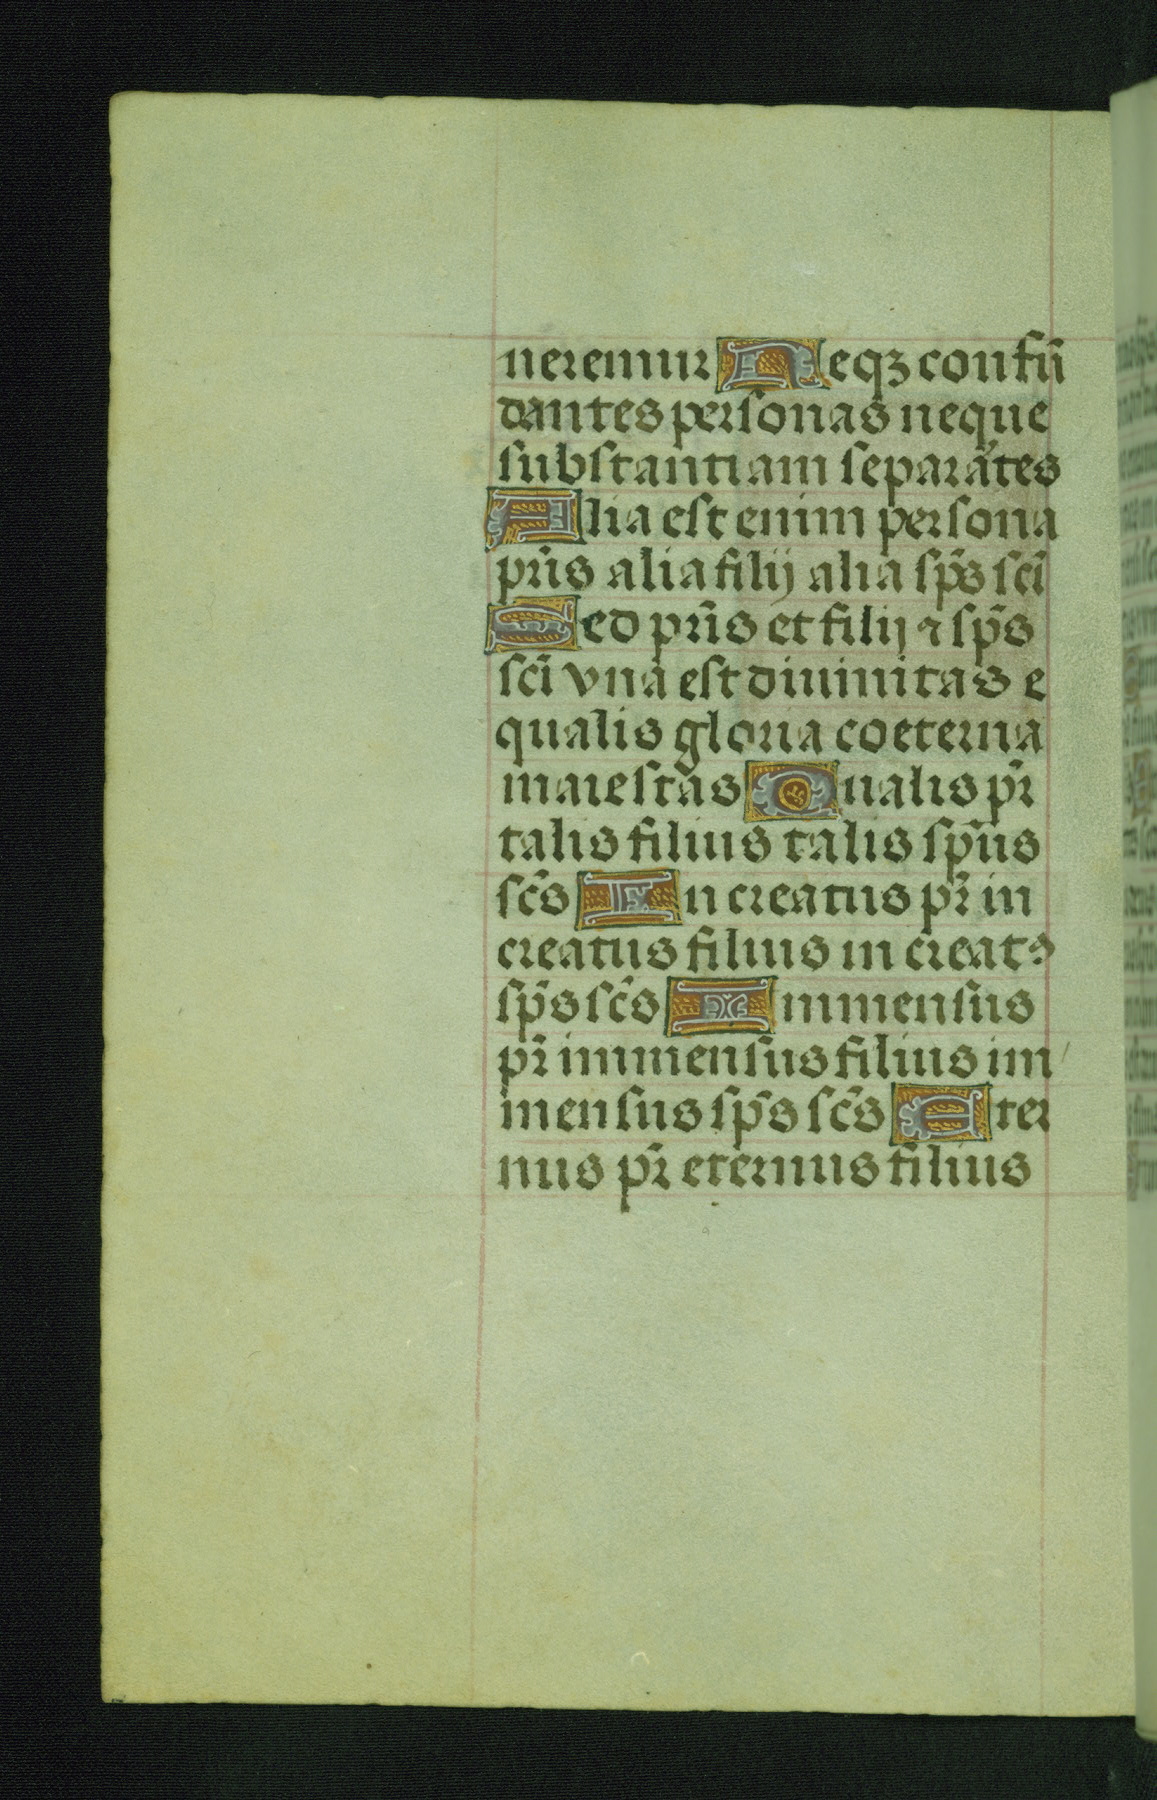 neremur Neqꝫ confū
dantes personas neque
substantiam separātes
Alia est enim persona
pr̄is alia filij alia sp̄s sc̄i
Sed pr̄is et filij ⁊ sp̄s
sc̄i vna est diuinitas e
qualis gloria coeterna
maiestas Qualis pr̄
talis filius talis sp̄us
sc̄s In creatus pr̄ in
creatus filius in creatꝯ
sp̄s sc̄s Immensus
pr̄ immensus filius im
mensus sp̄s sc̄s Eter
nus pr̄ eternus filius